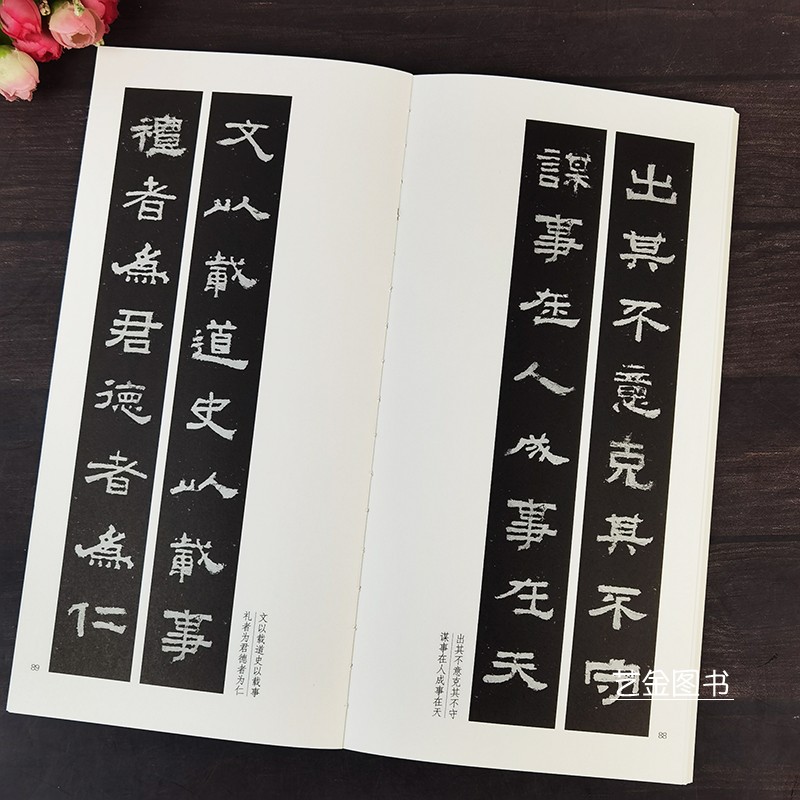 出其不意克其不守
謀事在人成事在天
出其不意克其不守
谋事在人成事在天
88
文以載道史以載事
禮者為君德者為仁
文以载道史以载事
礼者为君德者为仁
89
艺金图书